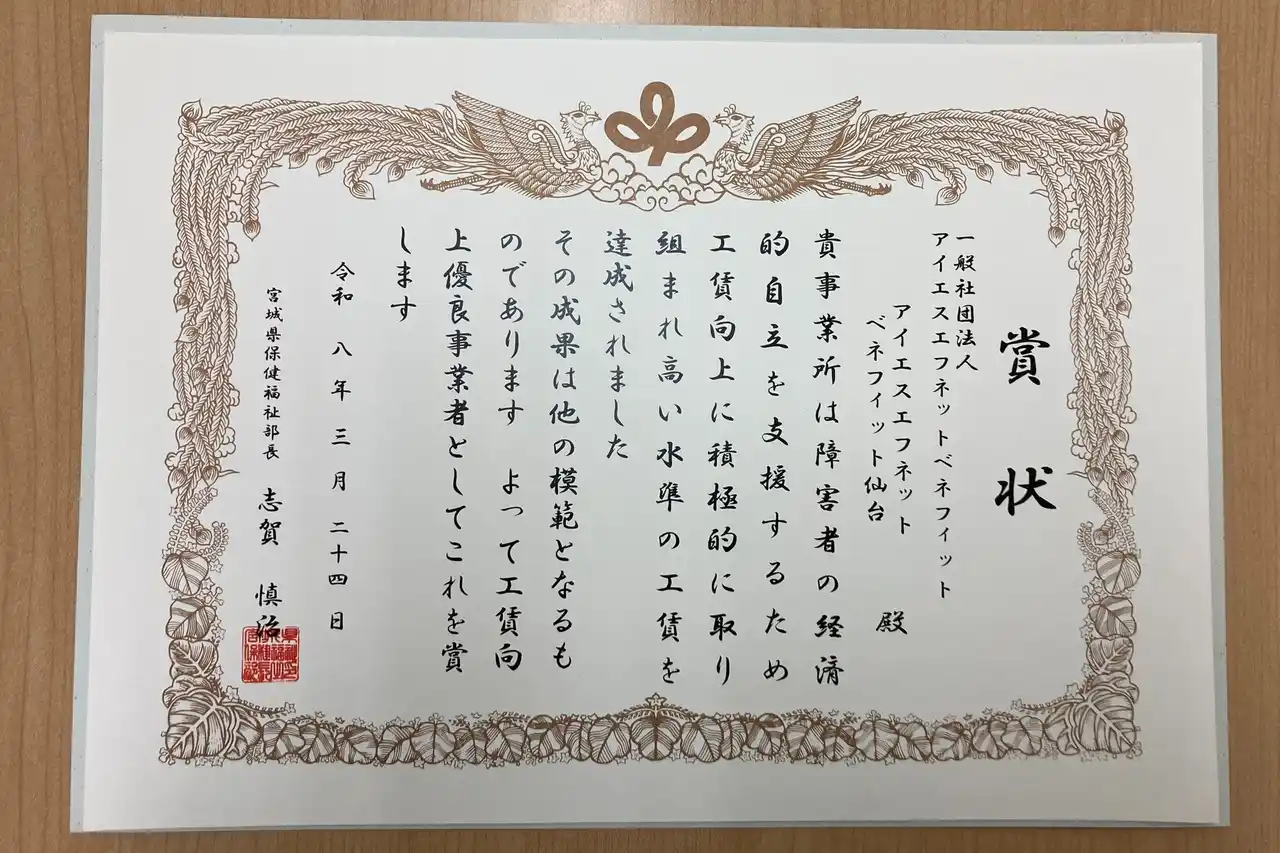 賞状
一般社団法人
アイエスエフネットベネフィット
アイエスエフネット
ベネフィット仙台
殿
貴事業所は障害者の経済
的自立を支援するため
工賃向上に積極的に取り
組まれ高い水準の工賃を
達成されました
その成果は他の模範となるも
のであります よって工賃向
上優良事業者としてこれを賞
します
令和八年三月二十四日
宮城県保健福祉部長 志賀 慎治